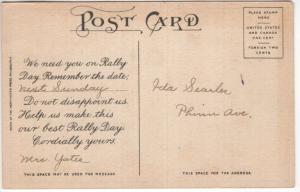 POST CARD
PLACE STAMP
HERE
UNITED STATES
AND CANADA
ONE CENT
FOREIGN TWO
CENTS
We need you on Rally
Day. Remember the date,
next Sunday
Do not disappoint us.
Help us make this
our best Rally Day.
Cordially yours,
Mrs. Yates
Ida Searles
Phinn Ave.
THIS SPACE MAY BE USED FOR THE MESSAGE
THIS SPACE FOR THE ADDRESS.